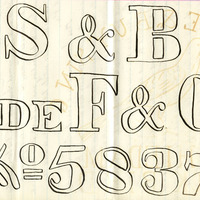 S & B
DE F & C
№ = 5837